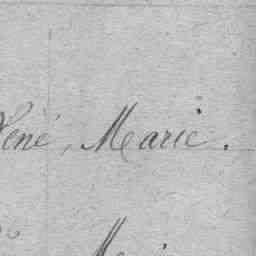 René, Marie.